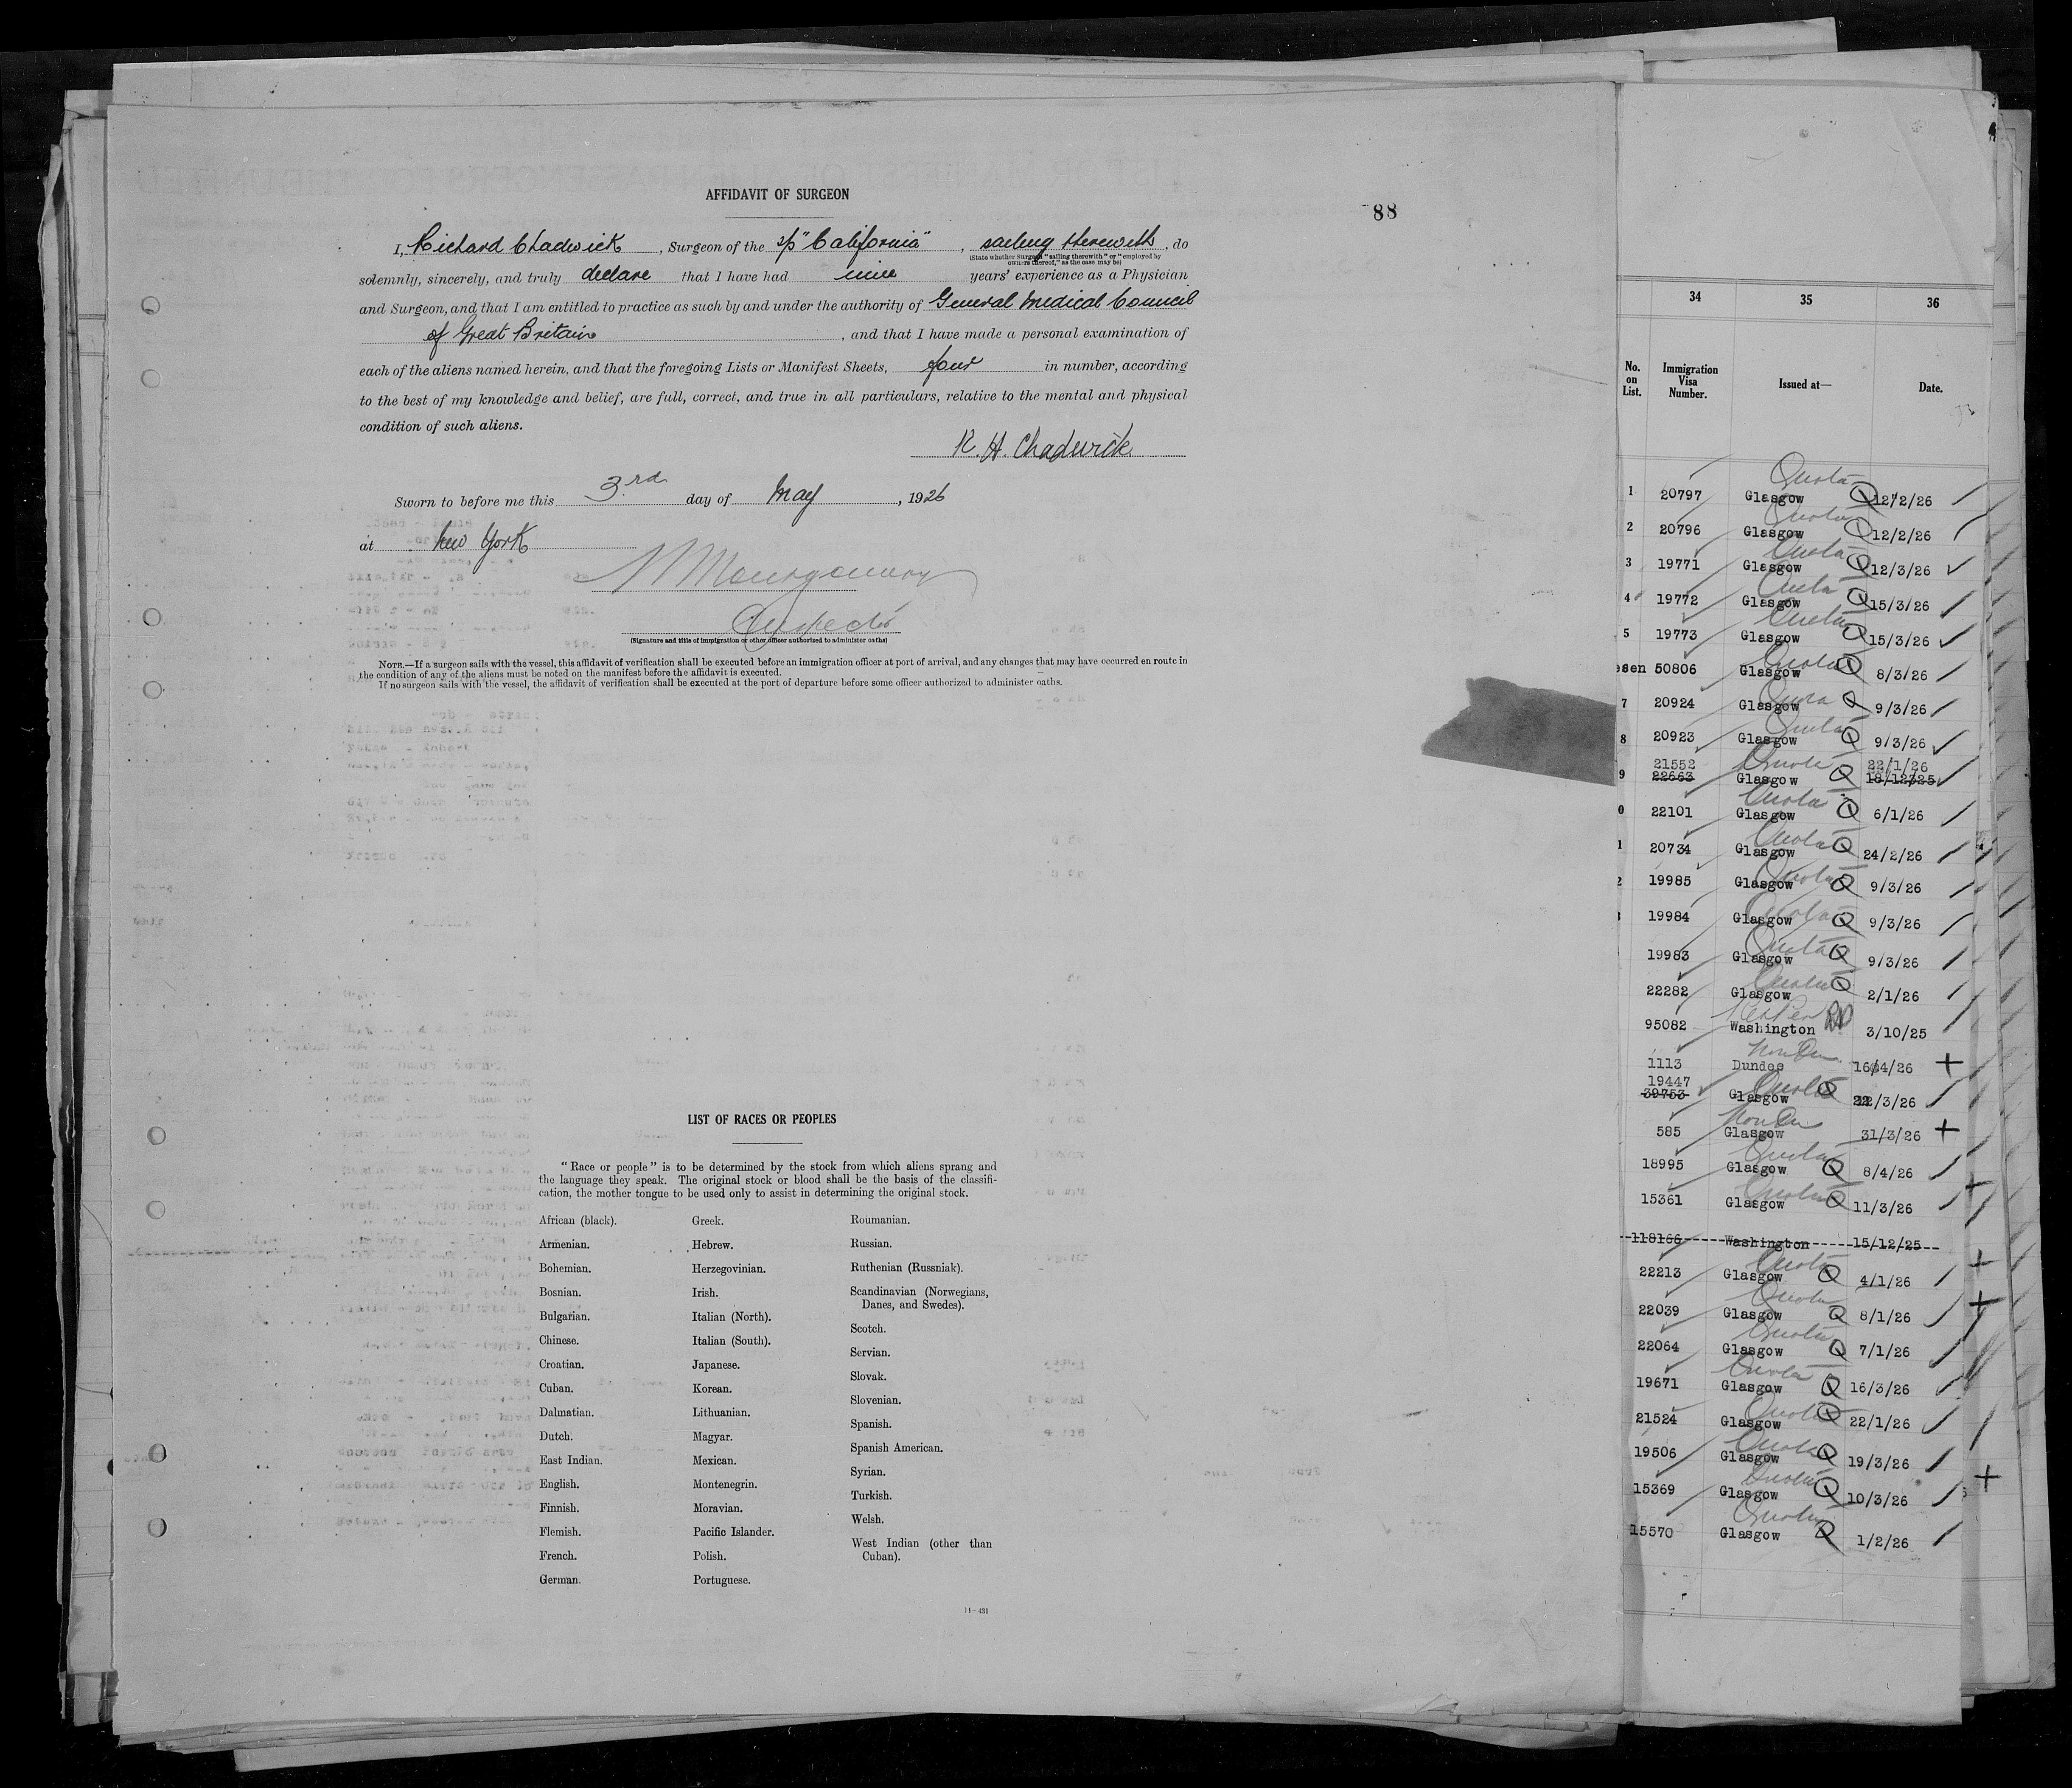 AFFIDAVIT OF SURGEON
88
I, Richard Chadwick, Surgeon of the s/s "California", sailing therewith, do
(State whether Surgeon "sailing therewith" or "employed by
owners thereof," as the case may be)
solemnly, sincerely, and truly declare that I have had nine years' experience as a Physician
and Surgeon, and that I am entitled to practice as such by and under the authority of General Medical Council
of Great Britain, and that I have made a personal examination of
each of the aliens named herein, and that the foregoing Lists or Manifest Sheets, four in number, according
to the best of my knowledge and belief, are full, correct, and true in all particulars, relative to the mental and physical
condition of such aliens.
R. H. Chadwick.
Sworn to before me this 3rd day of May, 1926
at New York
Montgomery
Inspector
(Signature and title of immigration or other officer authorized to administer oaths)
NOTE.—If a surgeon sails with the vessel, this affidavit of verification shall be executed before an immigration officer at port of arrival, and any changes that may have occurred en route in
the condition of any of the aliens must be noted on the manifest before the affidavit is executed.
If no surgeon sails with the vessel, the affidavit of verification shall be executed at the port of departure before some officer authorized to administer oaths.
LIST OF RACES OR PEOPLES
"Race or people" is to be determined by the stock from which aliens sprang and
the language they speak. The original stock or blood shall be the basis of the classifi-
cation, the mother tongue to be used only to assist in determining the original stock.
African (black).
Armenian.
Bohemian.
Bosnian.
Bulgarian.
Chinese.
Croatian.
Cuban.
Dalmatian.
Dutch.
East Indian.
English.
Finnish.
Flemish.
French.
German.
Greek.
Hebrew.
Herzegovinian.
Irish.
Italian (North).
Italian (South).
Japanese.
Korean.
Lithuanian.
Magyar.
Mexican.
Montenegrin.
Moravian.
Pacific Islander.
Polish.
Portuguese.
Roumanian.
Russian.
Ruthenian (Russniak).
Scandinavian (Norwegians,
Danes, and Swedes).
Scotch.
Servian.
Slovak.
Slovenian.
Spanish.
Spanish American.
Syrian.
Turkish.
Welsh.
West Indian (other than
Cuban).
14—431
34 35 36
No. on List. Immigration Visa Number. Issued at— Date.
Quota
1 20797 Glasgow Q 12/2/26
Quota
2 20796 Glasgow Q 12/2/26
Quota
3 19771 Glasgow Q 12/3/26
Quota
4 19772 Glasgow Q 15/3/26
Quota
5 19773 Glasgow Q 15/3/26
Quota
esen 50806 Glasgow Q 8/3/26
Quota
7 20924 Glasgow Q 9/3/26
Quota
8 20923 Glasgow Q 9/3/26
21552 Quota 22/1/26
9 22663 Glasgow Q 18/12/25
Quota
0 22101 Glasgow Q 6/1/26
Quota
1 20734 Glasgow Q 24/2/26
Quota
2 19985 Glasgow Q 9/3/26
Quota
19984 Glasgow Q 9/3/26
Quota
19983 Glasgow Q 9/3/26
Quota
22282 Glasgow Q 2/1/26
95082 Washington RP 3/10/25
Non Qu
1113 Dundee 16/4/26
19447 Quota
39753 Glasgow Q 22/3/26
Non Qu
585 Glasgow 31/3/26
Quota
18995 Glasgow Q 8/4/26
Quota
15361 Glasgow Q 11/3/26
118166 Washington 15/12/25
Quota
22213 Glasgow Q 4/1/26
Quota
22039 Glasgow Q 8/1/26
Quota
22064 Glasgow Q 7/1/26
Quota
19671 Glasgow Q 16/3/26
Quota
21524 Glasgow Q 22/1/26
Quota
19506 Glasgow Q 19/3/26
Quota
15369 Glasgow Q 10/3/26
Quota
15570 Glasgow Q 1/2/26